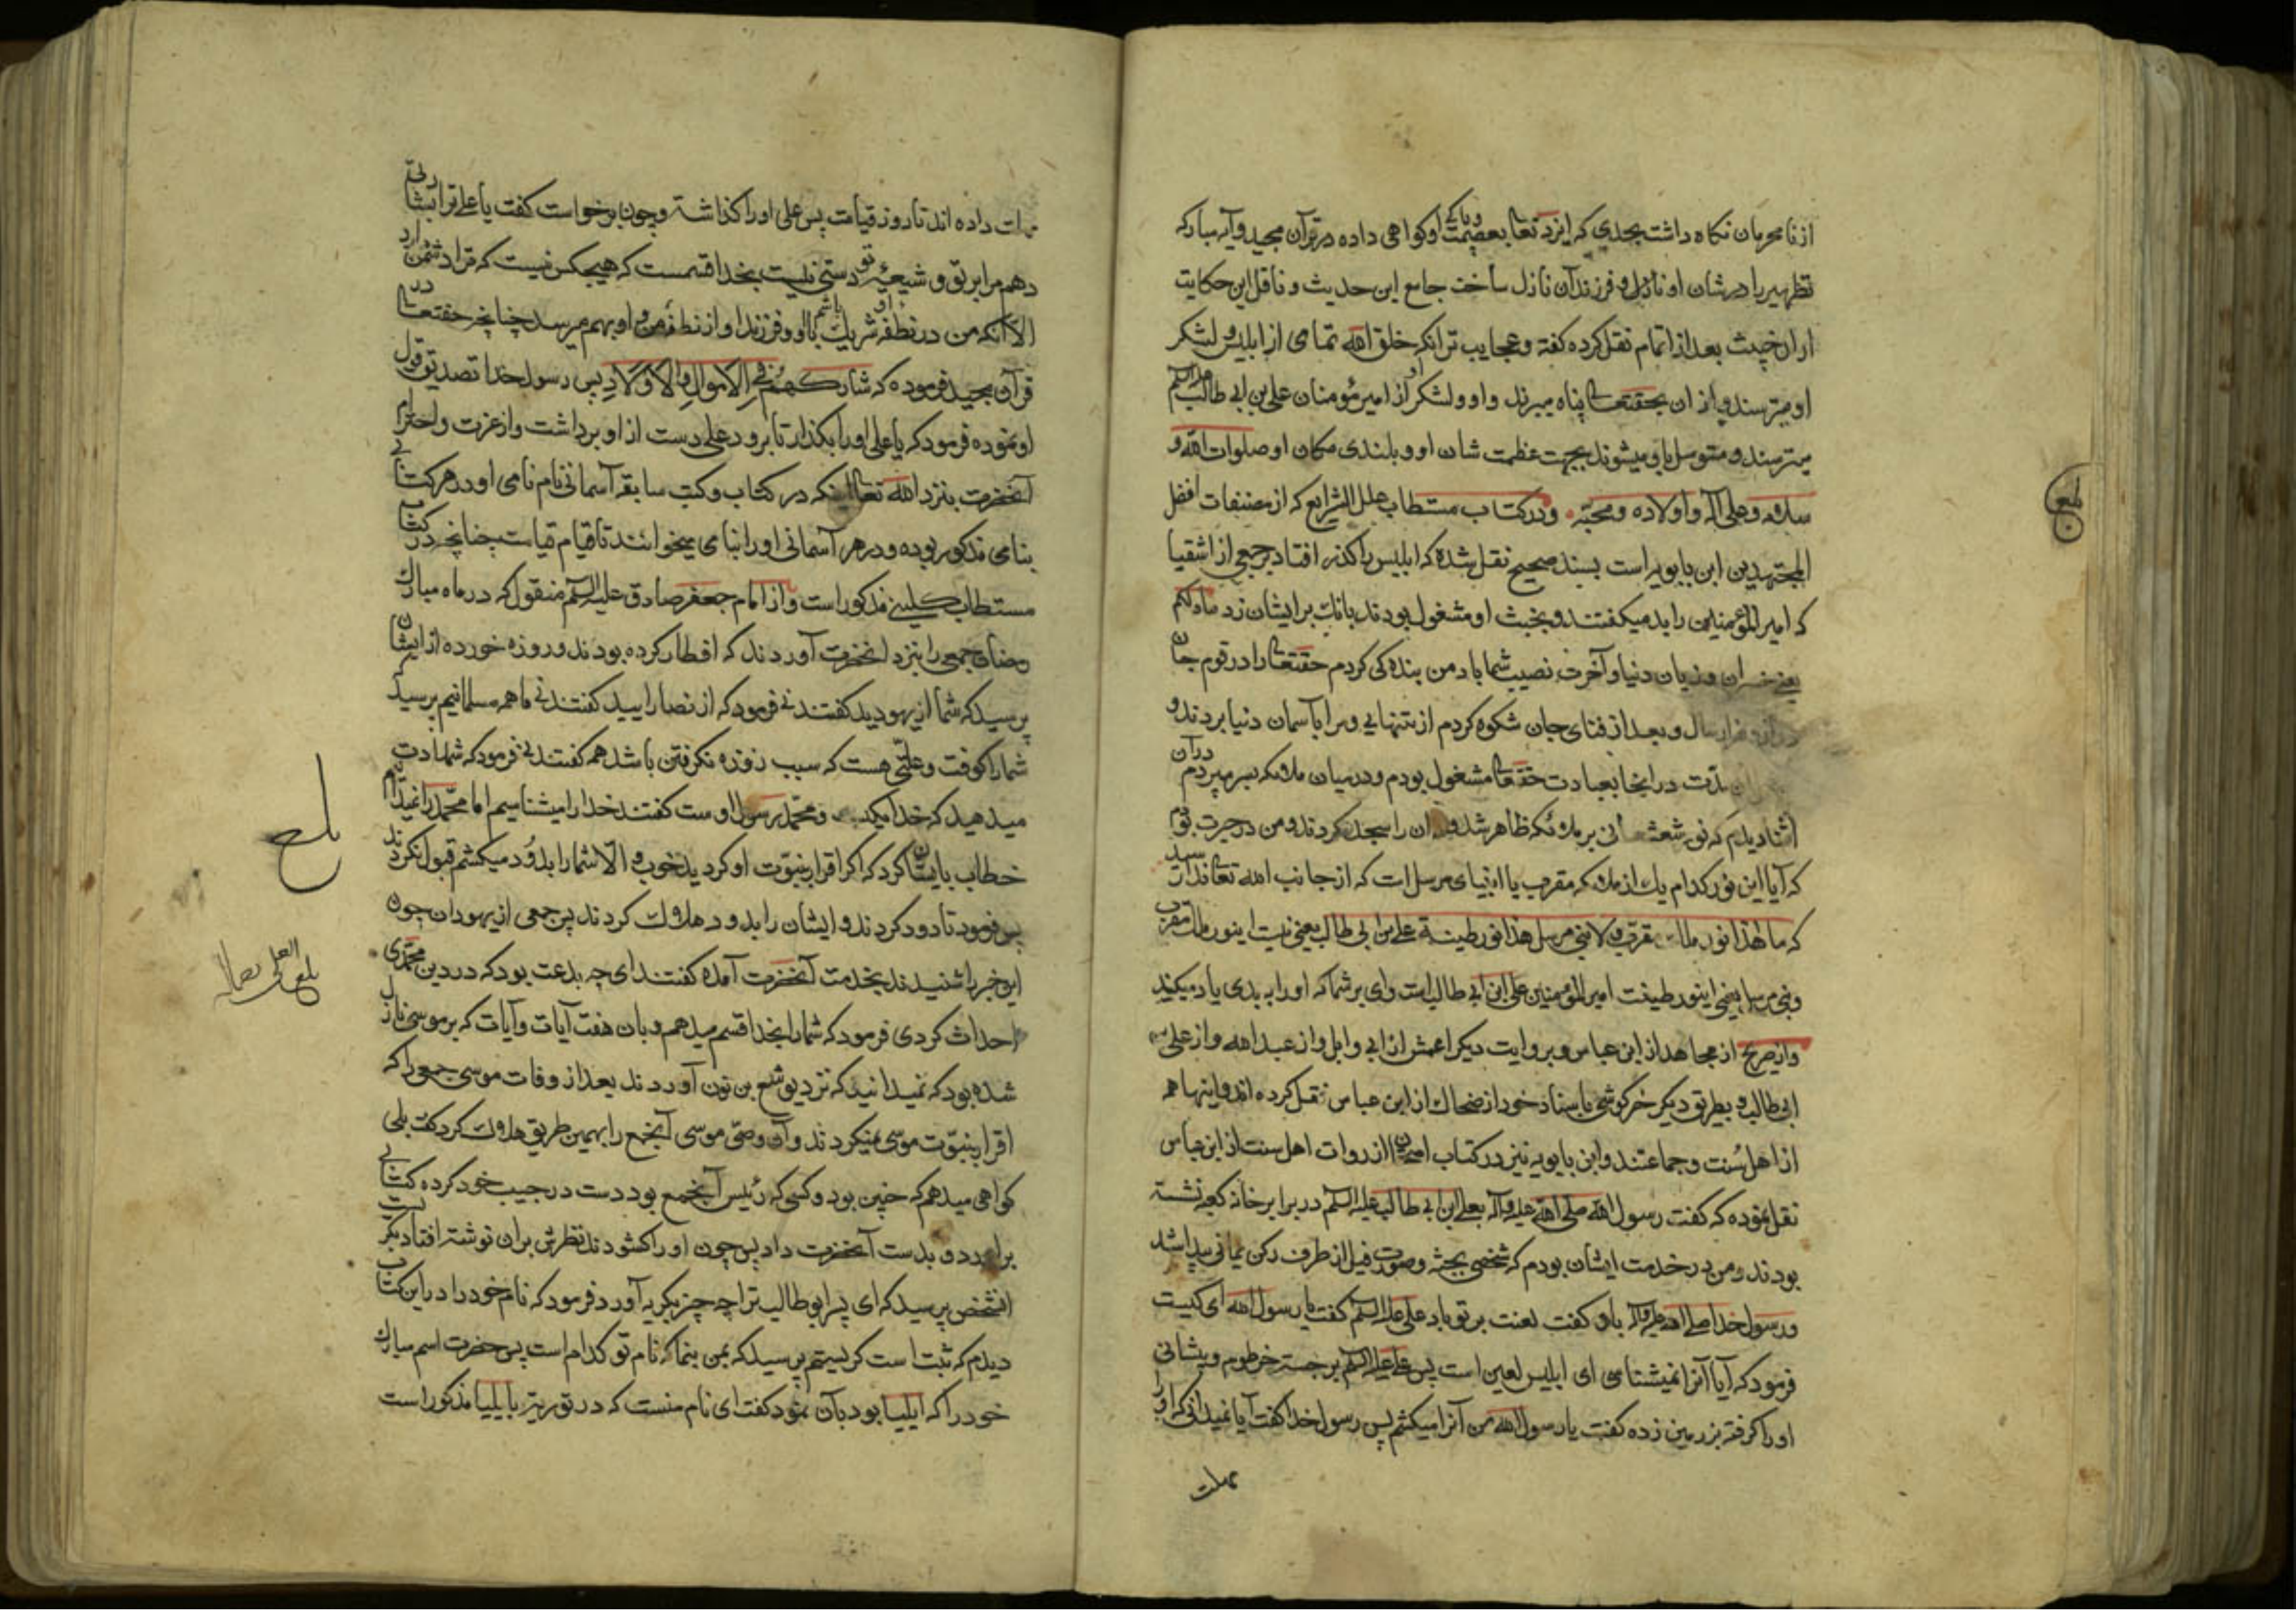 از نامحرمان نکاه داشت بحدی که ایزد تعالی بعصمت و پاکی او کواهی داده در قرآن مجید و آیه مبارکه
تطهیر را در شان او نازل و فرزندان نازل ساخت جامع این حدیث و ناقل این حکایت
بعد از اتمام نقل کرده کفته و عجایب تر انکه خلق الله تمامی از ابلیس و لشکر
او میترسند و از ان بحقتعالی پناه میبرند و او و لشکر او از امیر مؤمنان علی بن ابی طالب علیه السلم
میترسند و متوسل باو میشوند بجهت عظمت شان او و بلندی مکان او صلوات الله و
سلامه و علی آله و اولاده و محبّیه و در کتاب مستطاب علل الشرایع که از مصنفات افضل
المجتهدین ابن بابویه است بسند صحیح نقل شده که ابلیس را کذر افتاد بر جمعی از اشقیا
که امیر المؤمنین را بد میکفتند و بخبث او مشغول بودند بانک بر ایشان زد
یعنی خسران و زیان دنیا و آخرت نصیب شما باد من بنده کی کردم حقتعالی را در قوم جان
دوازده هزار سال و بعد از فنای جان شکوه کردم از تنهایی و مرا بآسمان دنیا بردند و
مدّت در انجا بعبادت حقتعالی مشغول بودم و در میان ملائکه بسر میبردم در آن
اثنا دیدم که نور شعشعانی بر ملائکه ظاهر شد و ان را سجده کردند و من در حیرت بودم
که آیا این نور کدام یک از ملائکه مقرب یا انبیای مرسل است که از جانب الله تعالی ندا رسید
که ما هذا نور ملک مقرّب و لا نبی مرسل هذا نور طینة علی بن ابی طالب یعنی نیست اینور ملک مقرب
و نبی مرسل یعنی اینور طینت امیر المؤمنین علی ابن ابی طالب است وای بر شما که او را به بدی یاد میکنید
از مجاهد از ابن عباس و بروایت دیکر اعمش از ابی وایل و از عبد الله و از علی بن
ابی طالب و بطریق دیکر خرکوشی باسناد خود از ضحاک از ابن عباس نقل کرده اند و اینها همه
از اهل سُنت و جماعتند و ابن بابویه نیز در کتاب امتحان از روات اهل سنت از ابن عباس
نقل نموده که کفت رسول الله صلی الله علیه و آله بعلی ابن ابی طالب علیه السلم در برابر خانه کعبه نشسته
بودند و من در خدمت ایشان بودم که شخصی بجثه و صورت فیل از طرف رکن یمانی پیدا شد
و رسول خدا صلی الله علیه و آله باو کفت لعنت بر تو باد علی علیه السلم کفت یا رسول الله ای کیست
فرمود که آیا آنرا نمیشناسی ای ابلیس لعین است پس علی علیه السلم برجسته خرطوم و پیشانی
او را کرفته بزمین زده کفت یا رسول الله من آنرا میکشم پس رسول خدا کفت آیا نمیدانی که او را
مهلت
بلغ
مهلت داده اند تا روز قیامت پس علی او را کذاشته و چون برخواست کفت یا علی ترا بشارتی
دهم مرا بر تو و شیعیه تو دستی نیست بخدا قسمست که هیچکس نیست که ترا دشمن دارد
الّا آنکه من در نطفه او شریک باشم با او و فرزند او از نطفه من و او بهم میرسد چنانچه حقتعالی در
قرآن مجید فرموده که شارکهم فی الاموال و الاولاد پس رسول خدا تصدیق قول
او نموده فرمود که یا علی او را بکذار تا برود علی دست از او برداشت و از عزت و احترام
آنحضرت بنزد الله تعالی اینکه در کتاب و کتب سابقه آسمانی نام نامی او در هر کتابی
بنامی مذکور بوده و در هر آسمانی او را بنامی میخوانند تا قیام قیامت چنانچه در کتاب
مستطاب کلینی مذکور است و از امام جعفر صادق علیه السلم منقول که در ماه مبارک
رمضان جمعی را بنزد انحضرت آوردند که افطار کرده بودند و روزه خورده از ایشان
پرسید که شما از یهودید کفتند نی فرمود که از نصارایید کفتند نی ما همه مسلمانیم پرسید که
شما را کوفت و علتی هست که سبب روزه نکرفتن باشد هم کفتند نی فرمود که شهادت
میدهید که خدا یکیست و محمّد رسول اوست کفتند خدا را میشناسیم اما محمّد را نمیدانیم
خطاب بایشان کرد که اکر اقرار بنبوّت او کردید خوب و الّا شما را بدُود میکشم قبول نکردند
پس فرمود تا دود کردند و ایشان را بدود هلاک کردند پس جمعی از یهودان چون
این خبر را شنیدند بخدمت آنحضرت آمده کفتند ای چه بدعت بود که در دین محمّدی
احداث کردی فرمود که شما را بخدا قسم میدهم و بان هفت آیات و آیات که بر موسی نازل
شده بود که نمیدانید که نزد یوشع بن نون آوردند بعد از وفات موسی جمعی را که
اقرار بنبوّت موسی نمیکردند و آن وصیّ موسی آنجمع را بهمین طریق هلاک کرد کفت بلی
کواهی میدهم که چنین بود و کسی که رئیس آنجمع بود دست در جیب خود کرده کتابی
برآورد و بدست آنحضرت داد پس چون او را کشودند نظرش بران نوشته افتاد بکریست
آنشخص پرسید که ای پسر ابو طالب ترا چه چیز بکریه آورد فرمود که نام خود را در این کتاب
دیدم که ثبت است کریستم پرسید که بمن بنما که نام تو کدام است پس حضرت اسم مبارک
خود را که ایلیا بود بآن نمود کفت ای نام منست که در توریة بایلیا مذکور است
بلغ